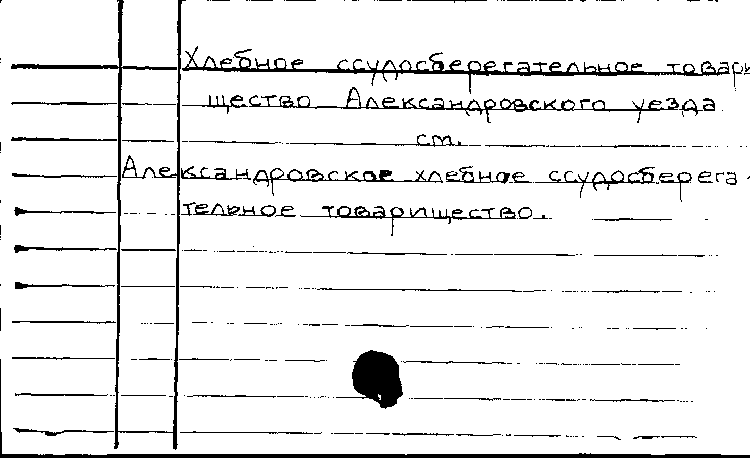 Хлебное ссудосберегательное товари
щество Александровского уезда
см.
Александровское хлебное ссудосберега-
тельное товарищество.